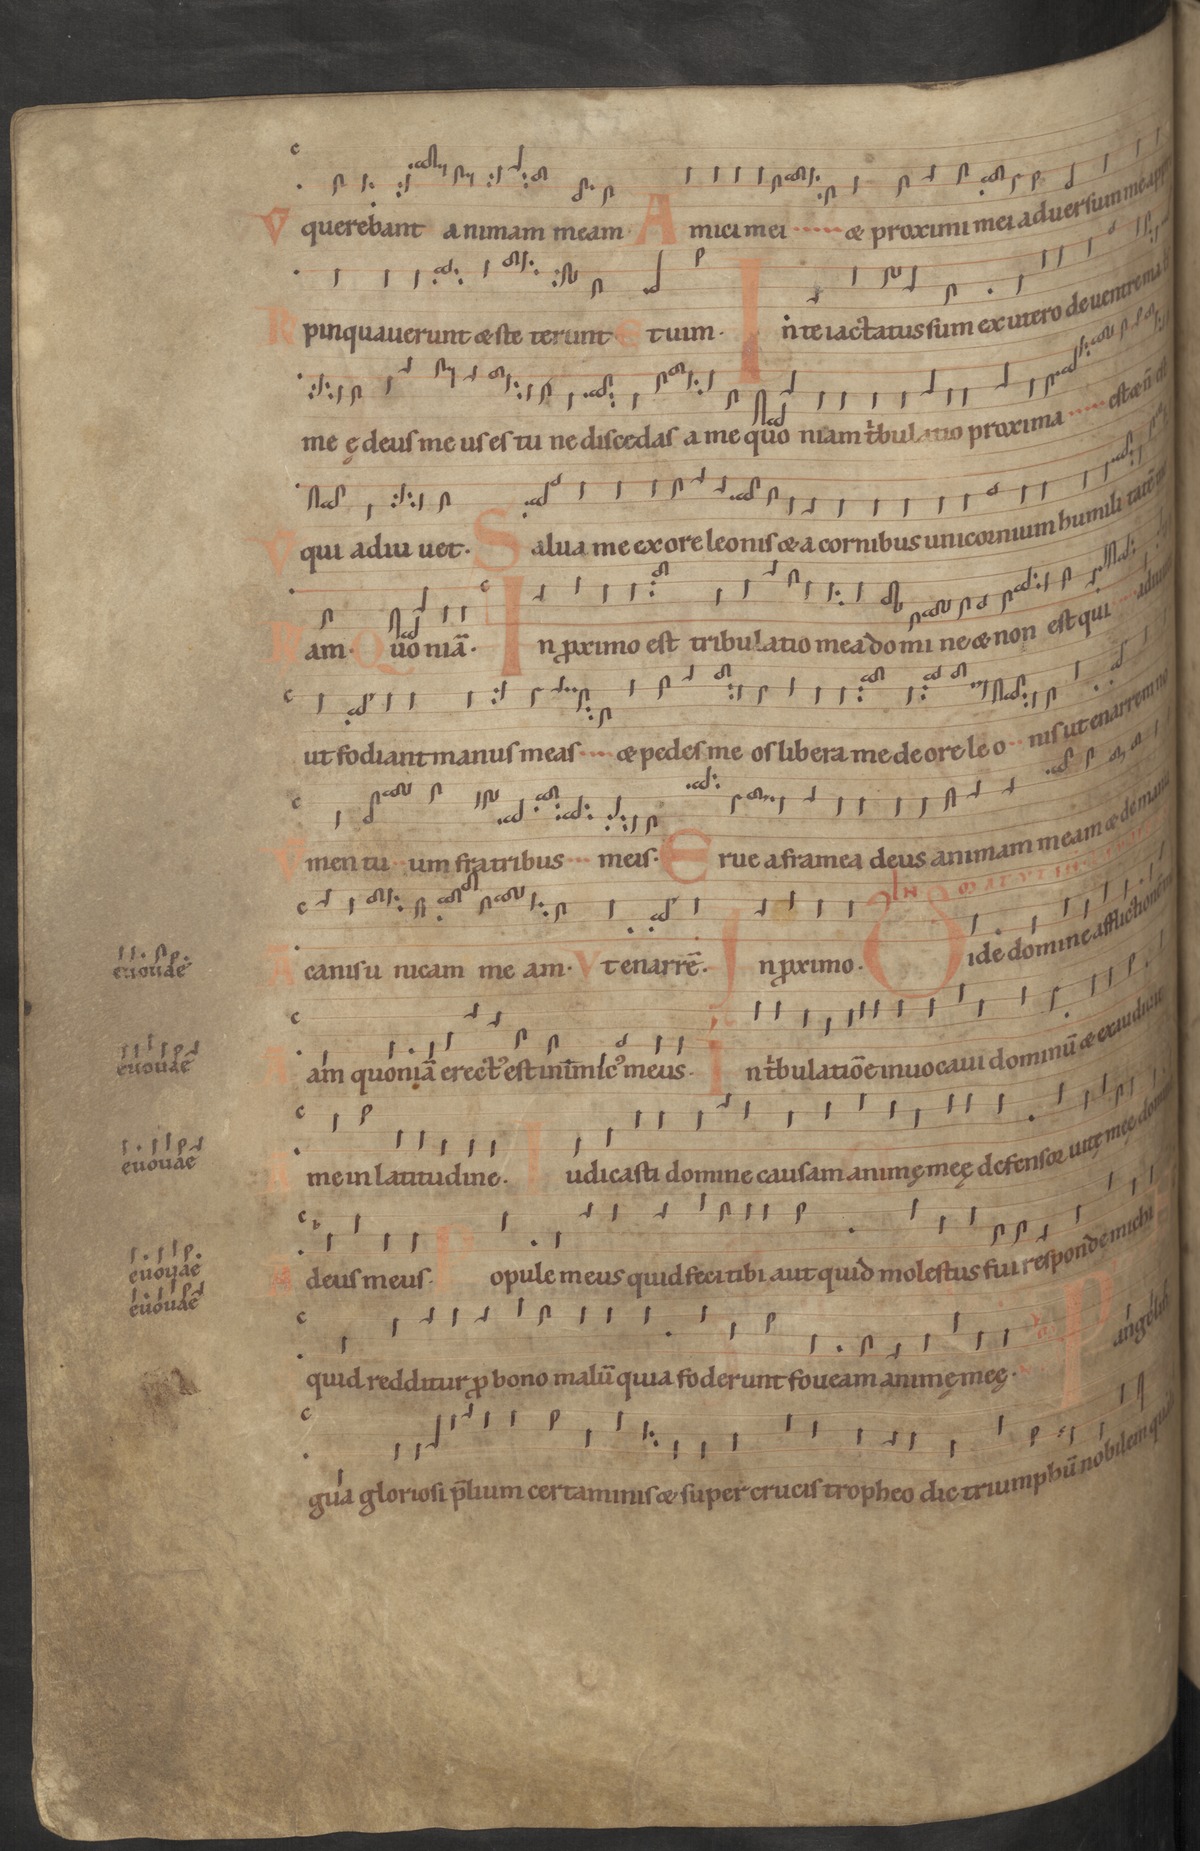 V querebant animam meam. Amici mei ..... æ proximi mei aduersum me appro
R pinquauerunt æ ste terunt Et uim. In te iactatus sum ex utero de uentre ma
me ę deus me us es tu ne discedas a me quo niam tbulatio proxima ..... est æ n̄ est
V qui adiu uet. Salua me ex ore leonis æ a cornibus unicornium humili tatē
R am. Quo niā. In ꝓximo est tribulatio mea do mi ne æ non est qui ... adiuu
ut fodiant manus meas .... æ pedes me os libera me de ore le o .. nis ut enarrem no
V men tu .. um fratribus ... meis. Erue a framea deus animam meam æ de manu
In matutinis
A canis u nicam me am. Vt enarrē. In ꝓximo. Vide domine afflictionē
euouae
A am quoniā erectꝰ est inimicꝰ meus. In tbulatiōe inuocaui dominū æ exaudiuit
euouae
A me in latitudine. Iudicasti domine causam animę meę defensor uitę meę domine
euouae
A deus meus. Popule meus quid feci tibi aut quid molestus fui responde michi
euouae
euouae
quid redditur ꝓ bono malū quia foderunt foueam animę meę. Pange lin
gua gloriosi p̄lium certaminis æ super crucis tropheo dic triumphū nobilem